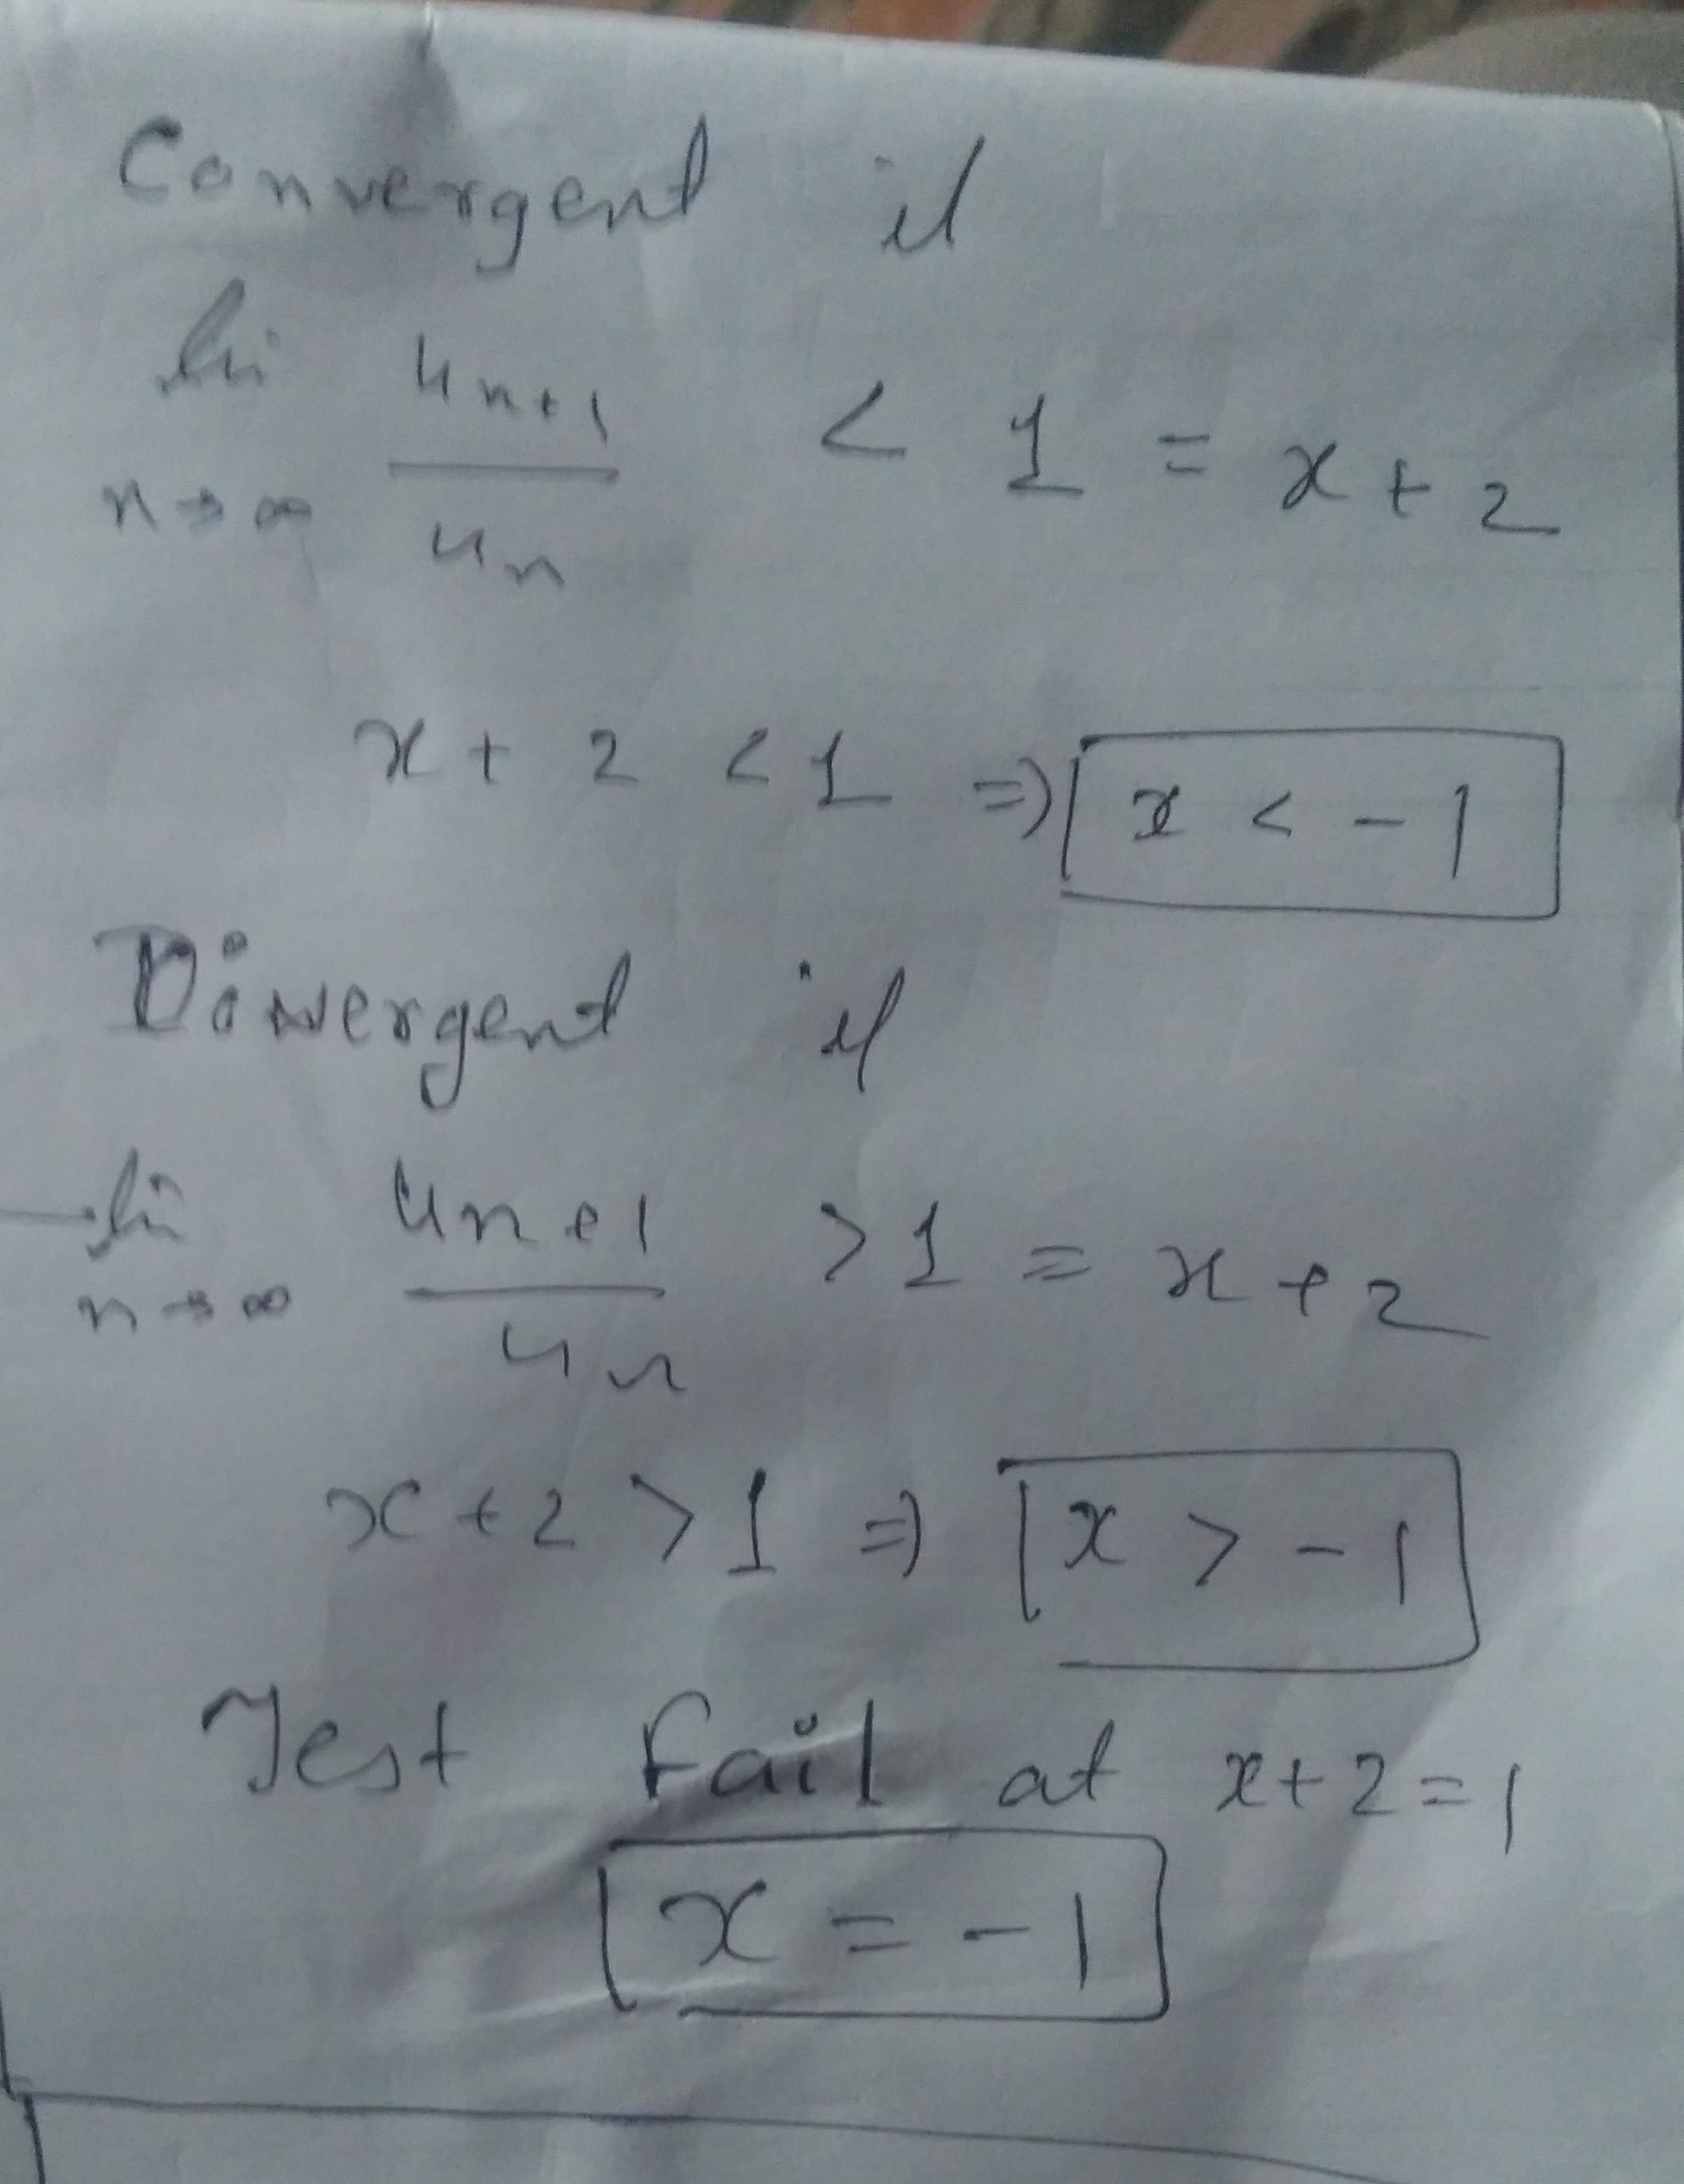 Convergent if
li u_{n+1} < 1 = x + 2
n→∞ u_n
x + 2 < 1 ⇒ x < -1
Divergent if
li u_{n+1} > 1 = x + 2
n→∞ u_n
x + 2 > 1 ⇒ x > -1
Test fail at x + 2 = 1
x = -1